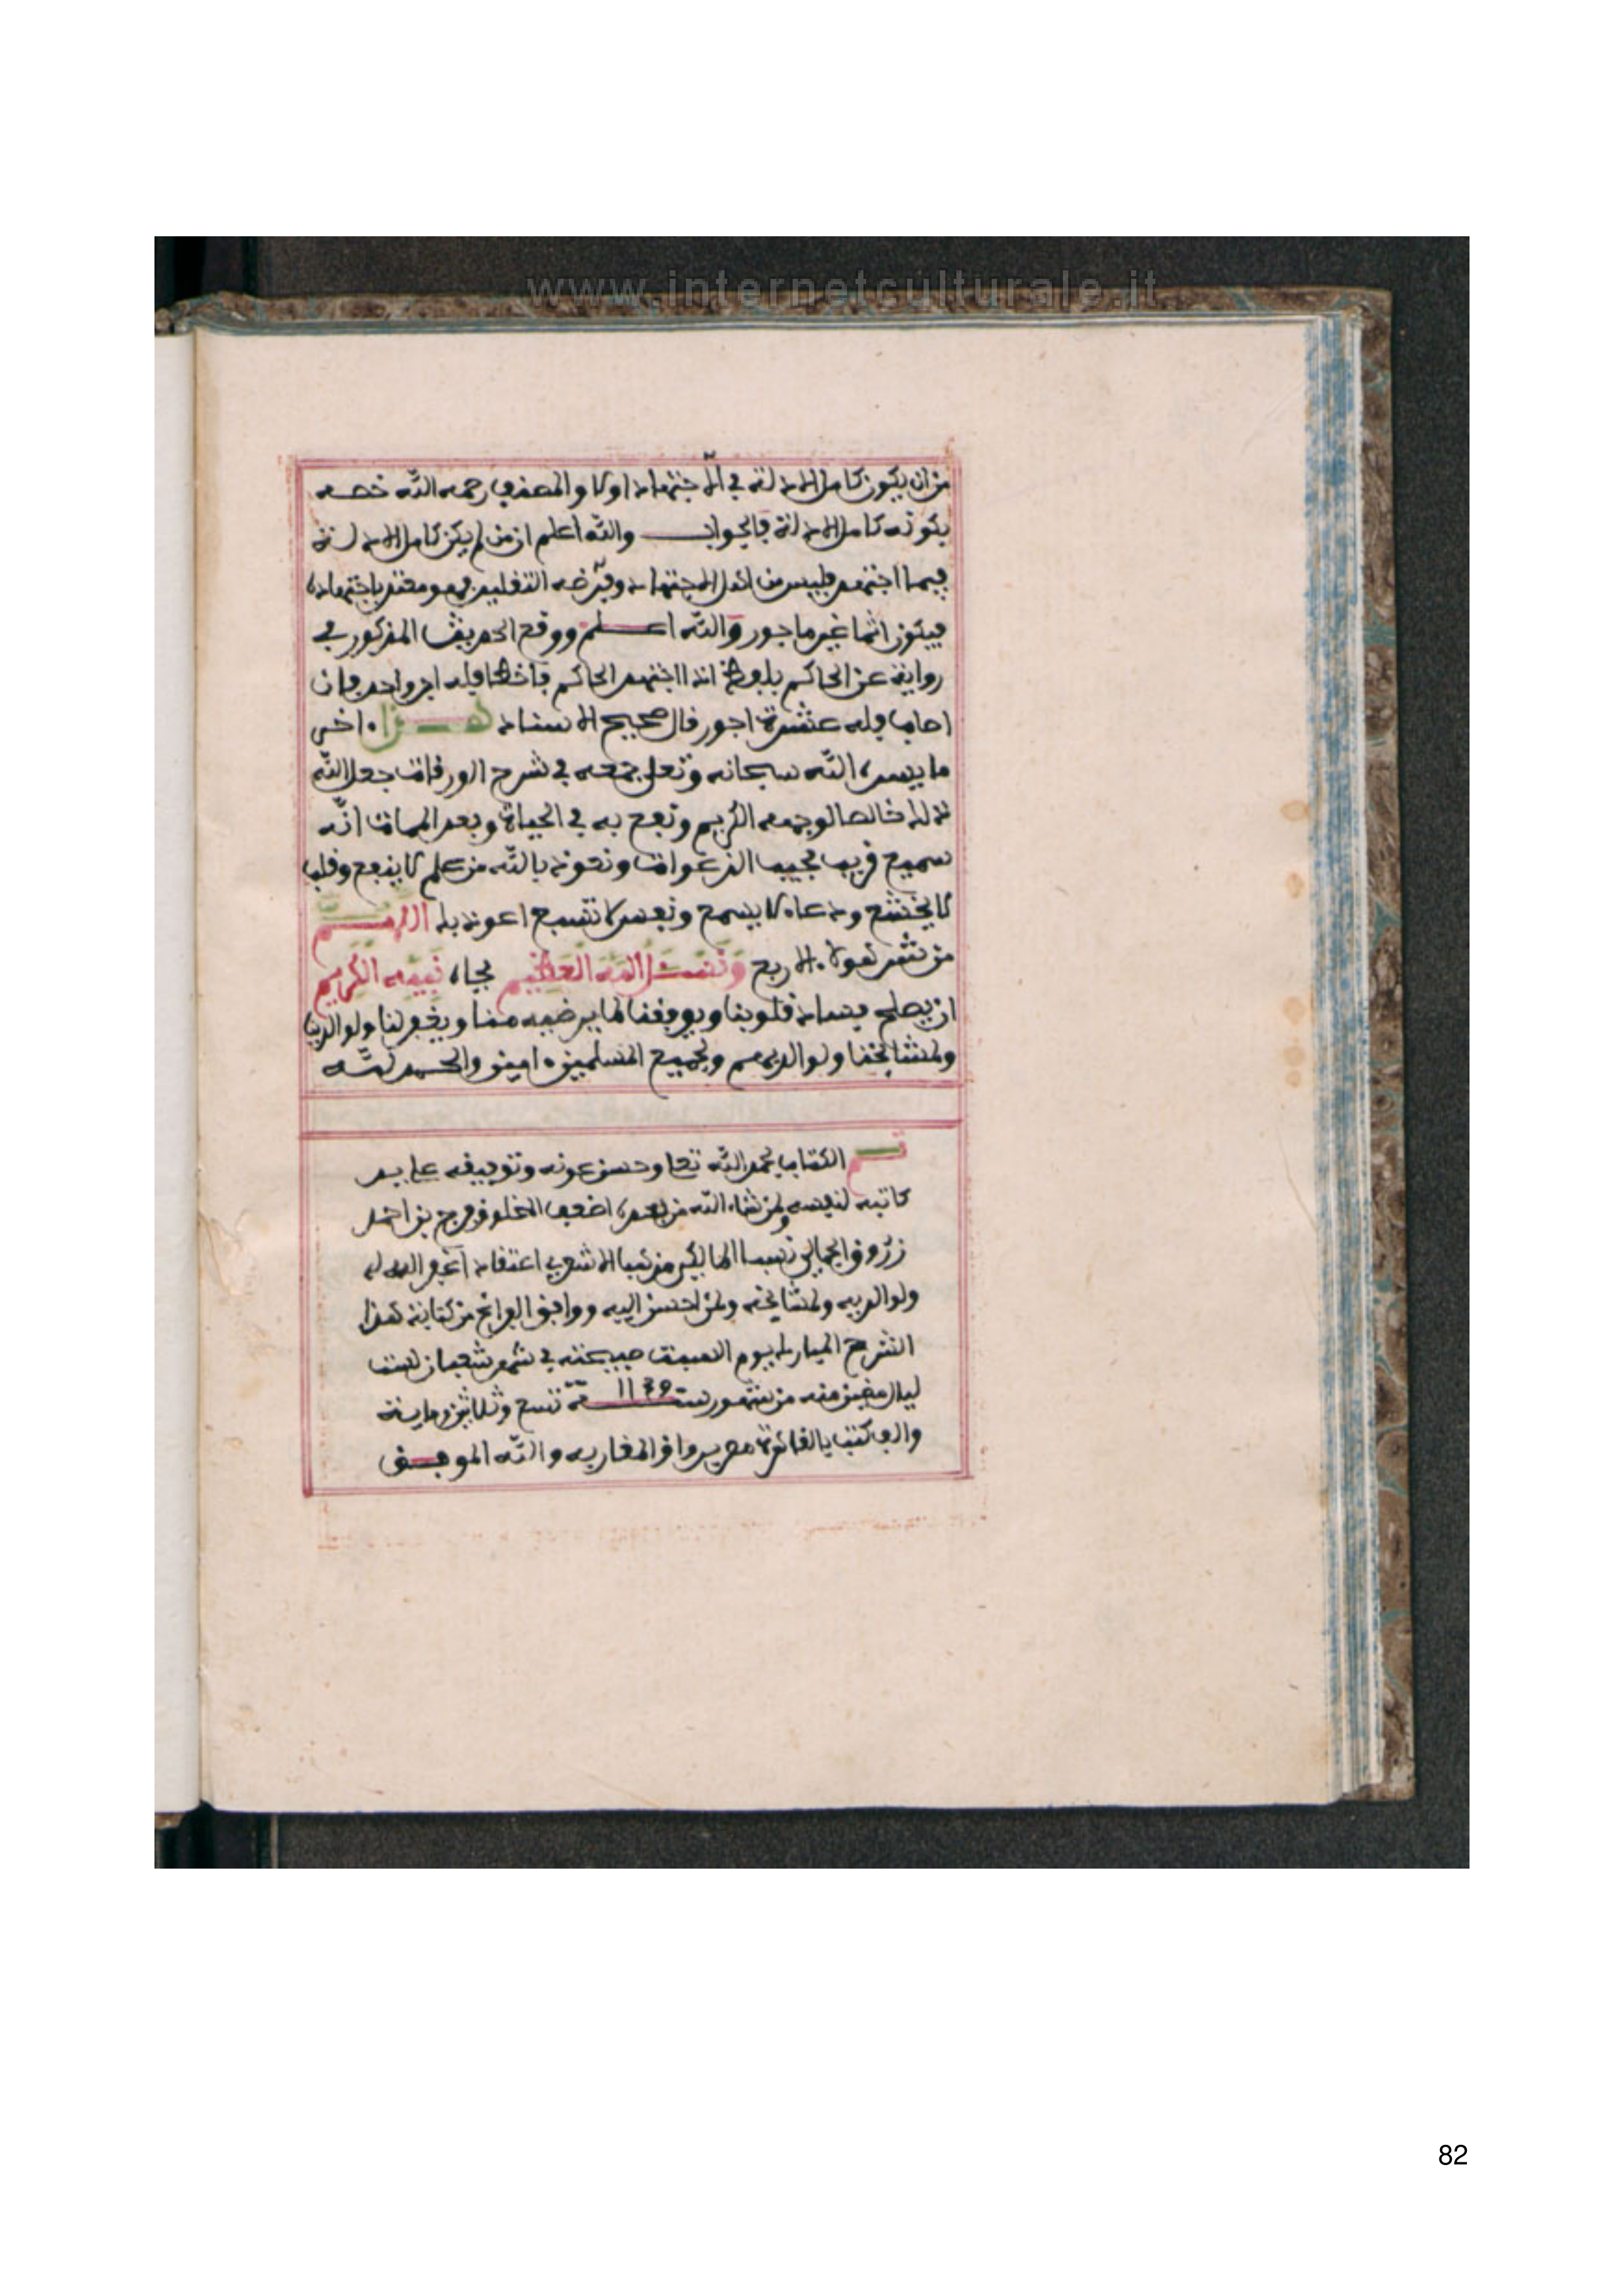 www.internetculturale.it
من ان يكون كامل الادلة في الاجتهاد او لا والمصنف رحمه الله خصه
بكونه كامل الادلة فالجواب والله اعلم ان من لم يكن كامل الادلة
فيما اجتهد فليس من اهل الاجتهاد وفرضه التقليد فهو معتد باجتهاده
فيكون اثما غير ماجور والله اعلم ووقع الحديث المذكور في
رواية عن الحاكم بلفظ اذا اجتهد الحاكم فاخطا فله اجر واحد وان
اصاب فله عشرة اجور قال صحيح الاسناد هذا اخر
ما يسره الله سبحانه وتعلى جمعه في شرح الورقات جعل الله
ذلك خالصا لوجهه الكريم ونفع به في الحياة وبعد الممات انه
سميع قريب مجيب الدعوات ونعوذ بالله من علم لا ينفع وقلب
لا يخشع ودعاء لا يسمع ونفس لا تشبع اعوذ بك اللهم
من شر هولاء الاربع ونسئل الله العظيم بجاه نبيه الكريم
ان يصلح فساد قلوبنا ويوفقنا لما يرضيه عنا ويغفر لنا ولوالدينا
ولمشائخنا ولوالديهم ولجميع المسلمين امين والحمد لله
تم الكتاب بحمد الله تعا وحسن عونه وتوفيقه على يد
كاتبه لنفسه ولمن شاء الله من بعده اضعف الخلق فرج بن احمد
زروق الجمالي نسبا المالكي مذهبا الاشعري اعتقادا غفر الله له
ولوالديه ولمشائخه ولمن احسن اليه ووافق الفراغ من كتابة هذا
الشرح المبارك يوم السبت صبيحته في شهر شعبان لست
ليال مضين منه من شهور سنة 1139 تسع وثلاثين وماية
والف كتب بالقاهرة مصر برواق المغاربه والله الموفق
82